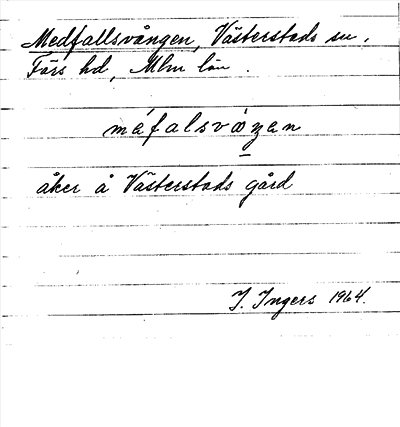 Medfallsvången, Västerstads sn.
Färs hd, Mlm län.
måfalsvåŋan
åker å Västerstads gård
I. Ingers 1964.